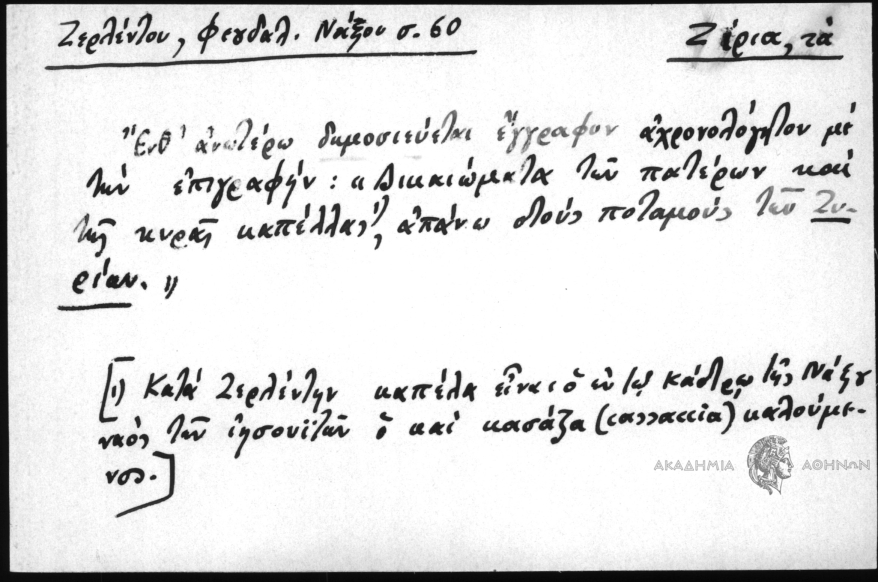 Ζερλέντου, Φεουδαλ. Νάξου σ. 60
Ζίρια, τά
"Ἐνθ' ἀνωτέρω δημοσιεύεται ἔγγραφον ἀχρονολόγητον μέ
τήν ἐπιγραφήν: « Δικαιώματα τῶν πατέρων καί
τῆς κυρᾶς καπέλλας¹⁾, ἀπάνω στούς ποταμούς τῶν Ζυ-
ρίων. »
[1) Κατά Ζερλέντην καπέλα εἶναι ὁ ἐν τῷ κάστρῳ τῆς Νάξου
ναός τῶν ἰησουϊτῶν ὁ καί κασάζα (cassaccia) καλούμε-
νος.]
ΑΚΑΔΗΜΙΑ ΑΘΗΝΩΝ